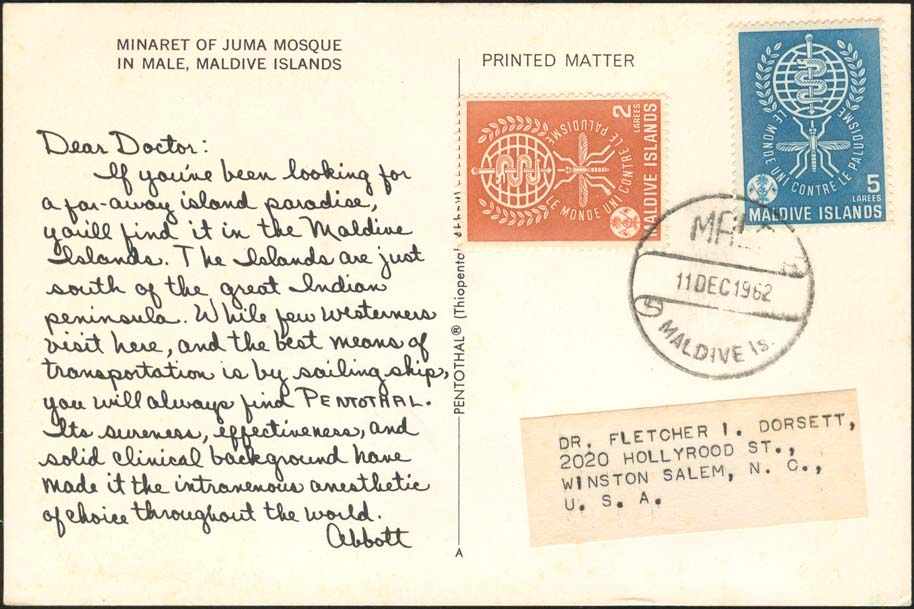 MINARET OF JUMA MOSQUE
IN MALE, MALDIVE ISLANDS
Dear Doctor:
If you've been looking for
a far-away island paradise,
you'll find it in the Maldive
Islands. The Islands are just
south of the great Indian
peninsula. While few westerners
visit here, and the best means of
transportation is by sailing ship,
you will always find PENTOTHAL.
Its sureness, effectiveness, and
solid clinical background have
made it the intravenous anesthetic
of choice throughout the world.
Abbott
PENTOTHAL® (Thiopental
A
PRINTED MATTER
2
LAREES
MALDIVE ISLANDS
LE MONDE UNI CONTRE LE PALUDISME
LE MONDE UNI CONTRE LE PALUDISME
5
LAREES
MALDIVE ISLANDS
11 DEC 1962
MALDIVE Is.
DR. FLETCHER I. DORSETT,
2020 HOLLYROOD ST.,
WINSTON SALEM, N. C.,
U. S. A.